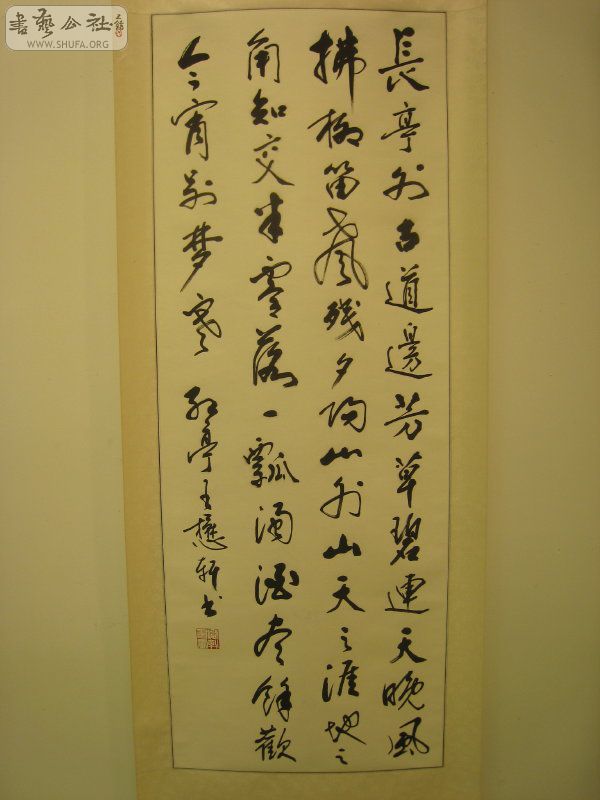 長亭外古道邊芳草碧連天晚風
拂柳笛聲殘夕陽山外山天之涯地之
角知交半零落一瓢濁酒盡餘歡
今宵别梦寒 亭王懋軒书
書藝公社
WWW.SHUFA.ORG